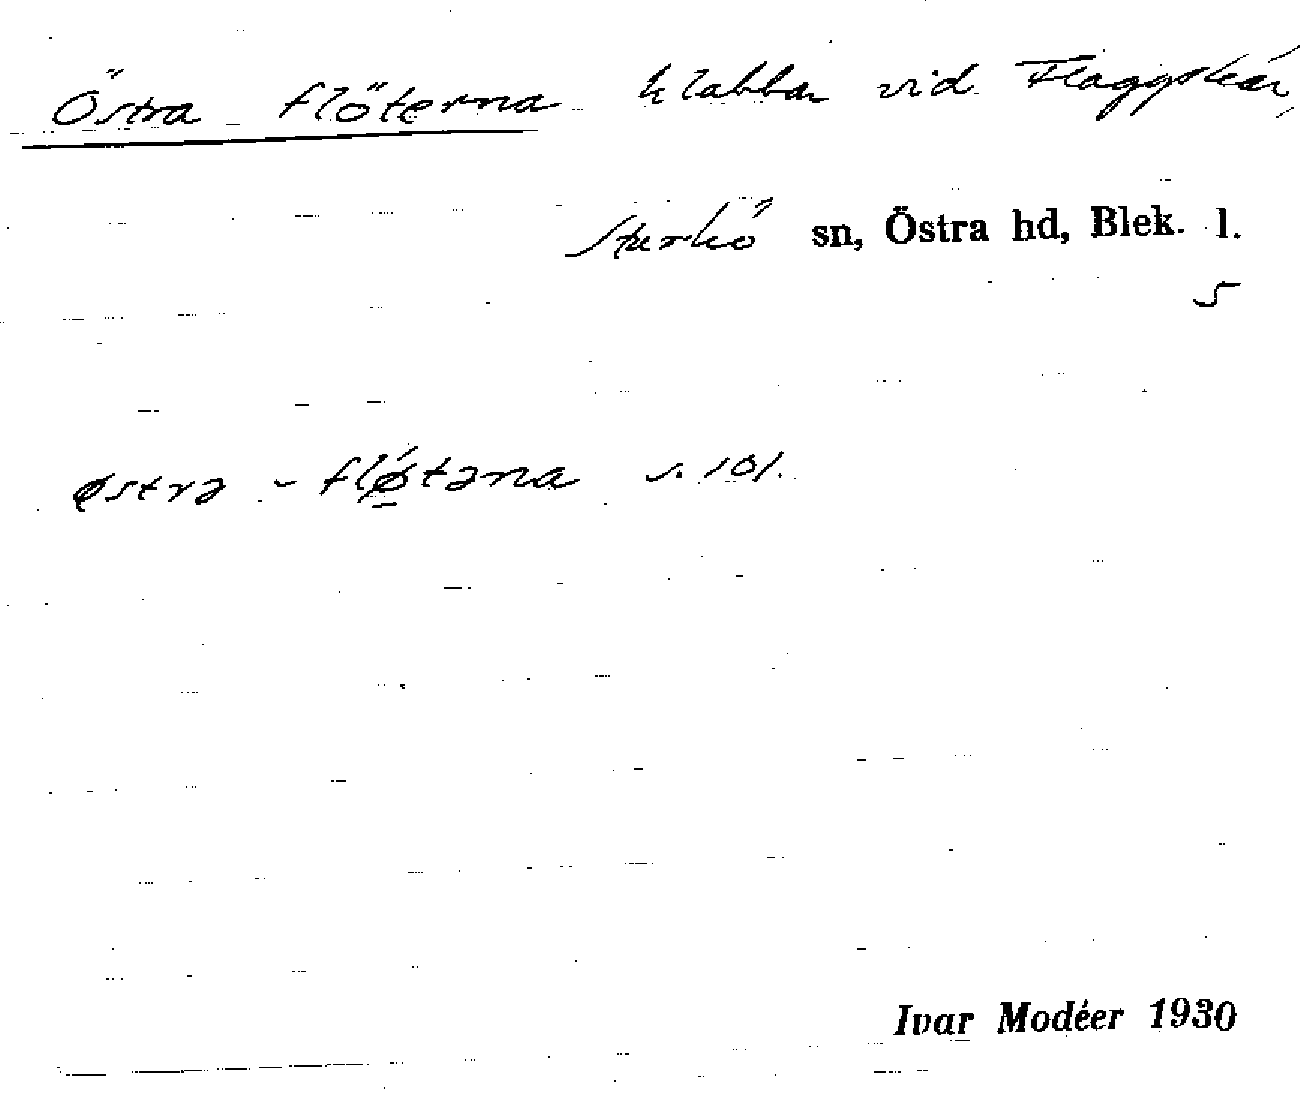 Östra flöterna klabbar vid Flaggskär,
Sturkö sn, Östra hd, Blek. l.
5
østrə - flǿ̱təna s. 101.
Ivar Modéer 1930